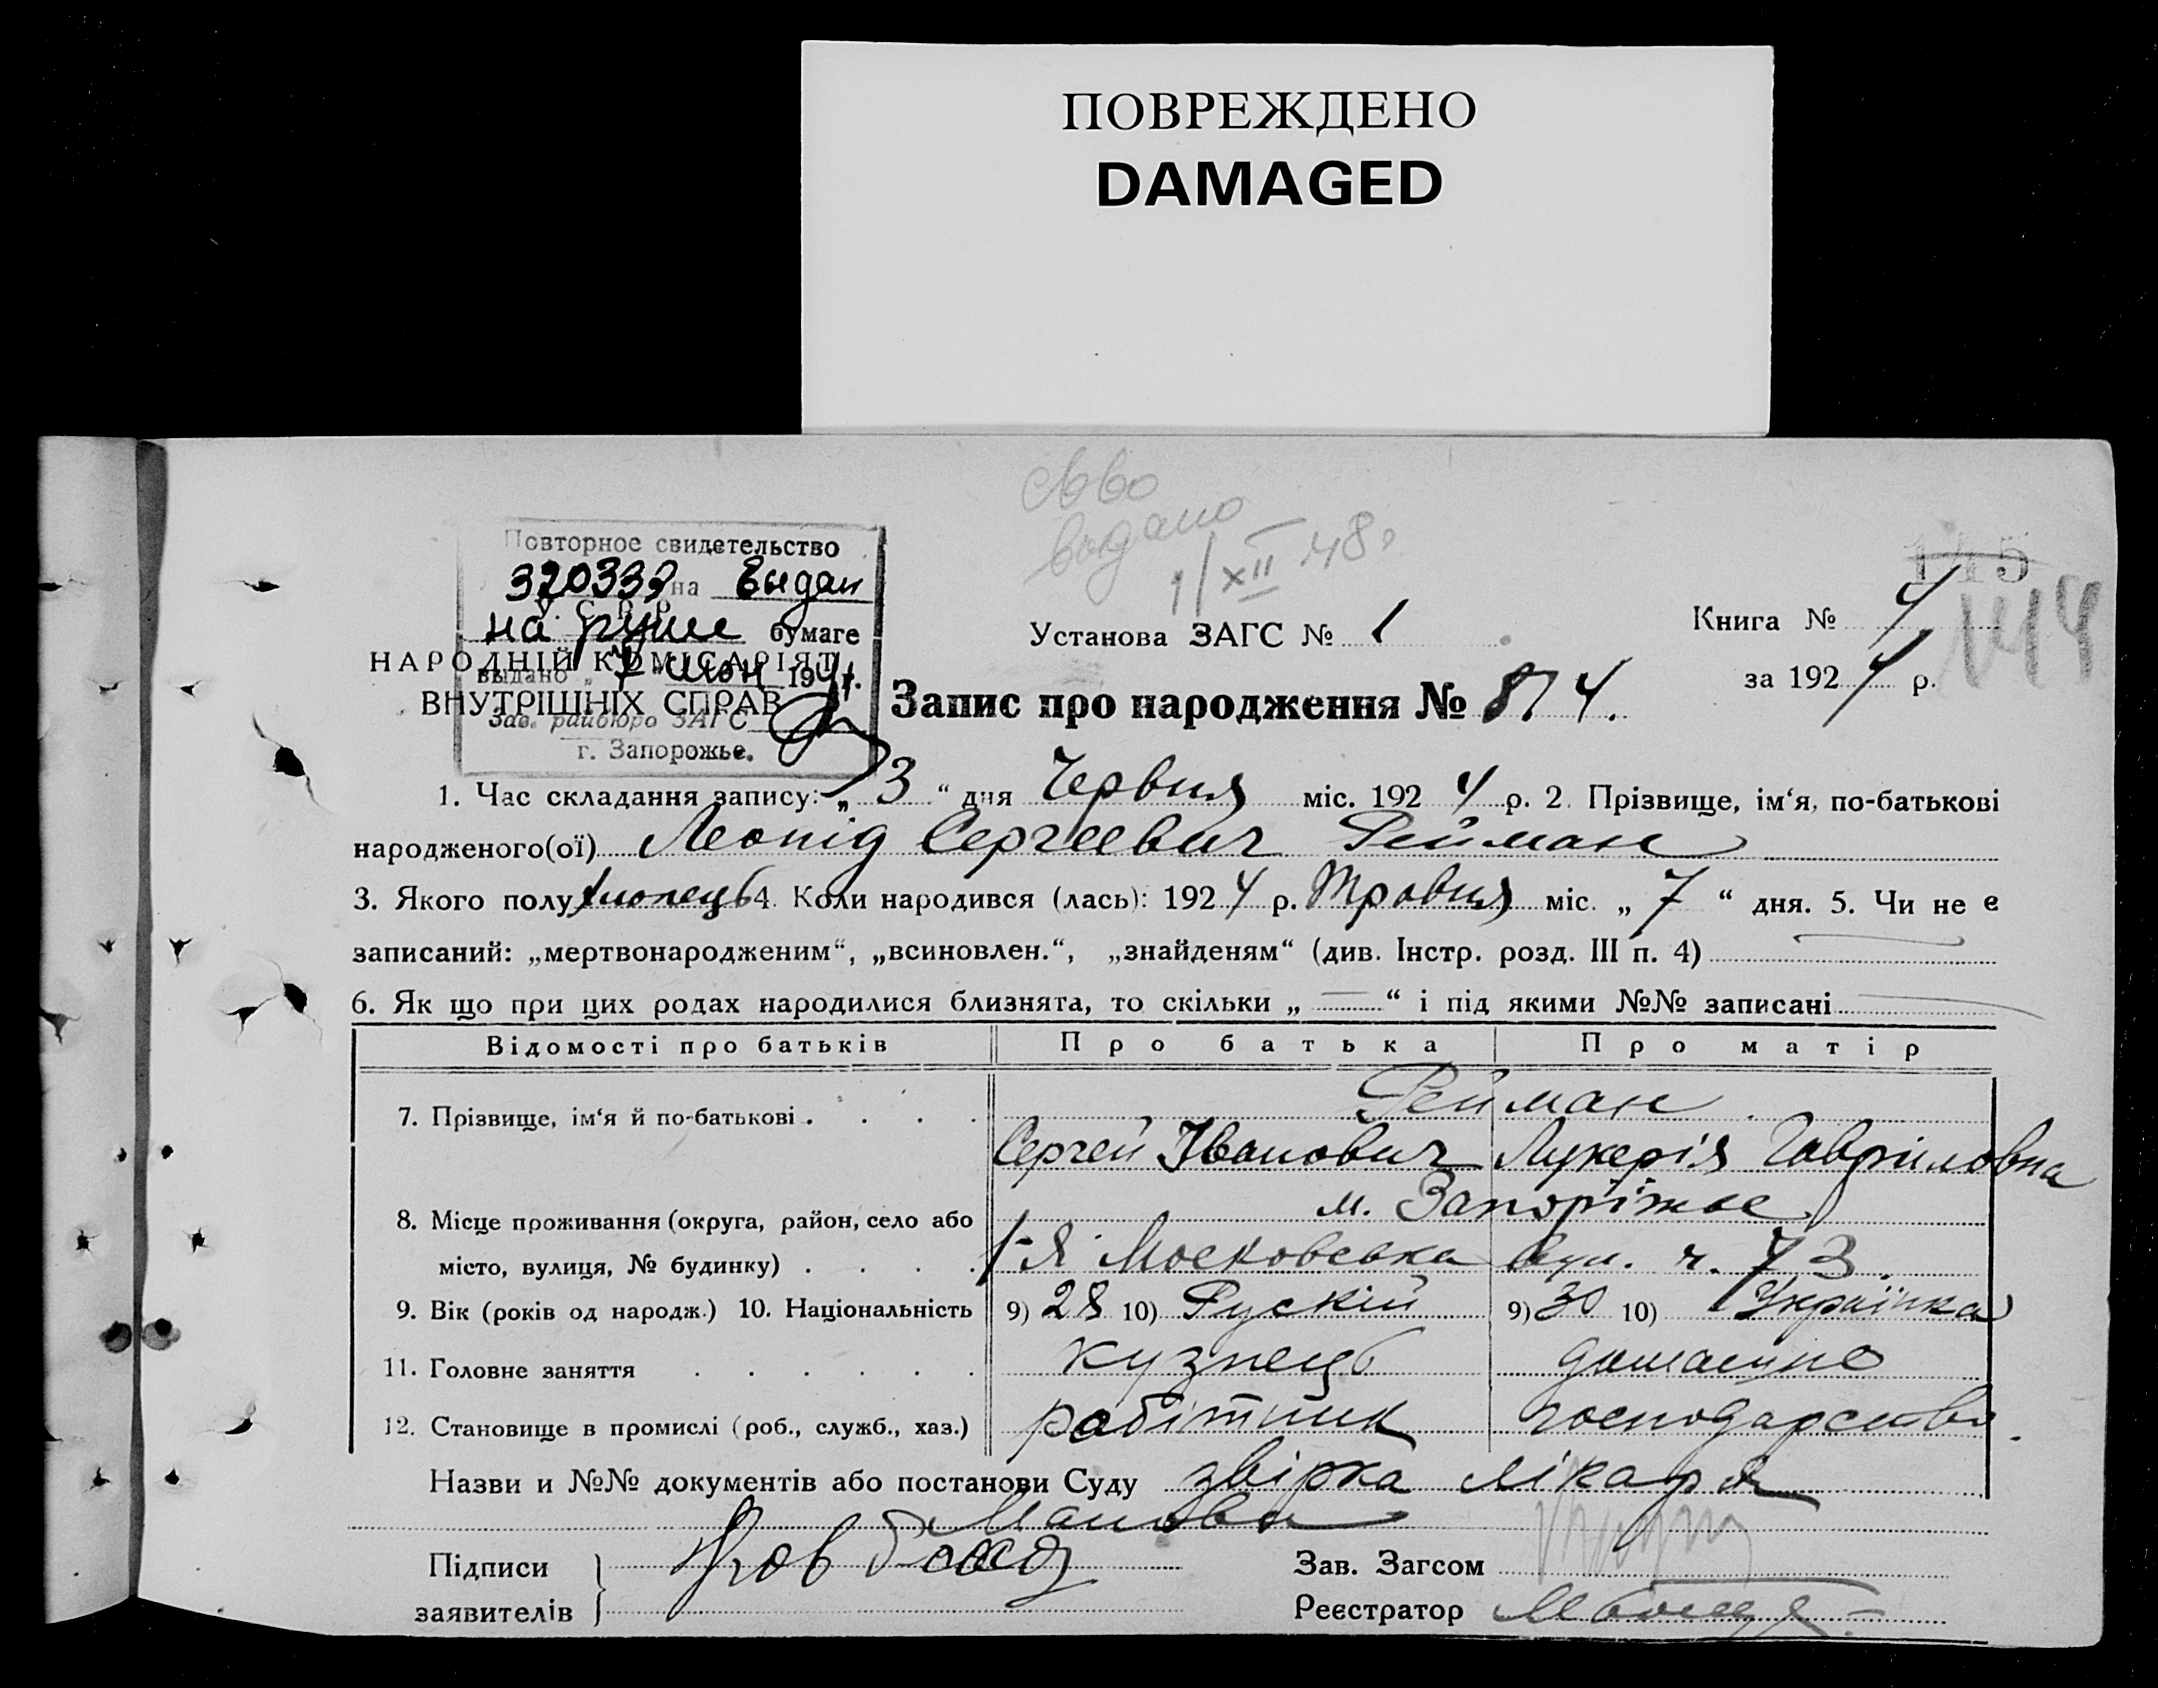 ПОВРЕЖДЕНО
DAMAGED
выдано
1/XII 48г
Повторное свидетельство
320339 на выдан
У С Р Р
на руки бумаге
НАРОДНІЙ КОМІСАРІЯТ
выдано „7" июн 194 г.
ВНУТРІШНІХ СПРАВ
Зав. райбюро ЗАГС
г. Запорожье.
145
144
Установа ЗАГС № 1
Книга № 4
за 1924 р.
Запис про народження № 874.
1. Час складання запису: „3" дня Червня міс. 1924 р. 2. Прізвище, ім'я, по-батькові
народженого(ої) Леонід Сергеевич Рейман
3. Якого полу хлопець 4. Коли народився (лась): 1924 р. Травня міс. „7" дня. 5. Чи не є
записаний: „мертвонародженим", „всиновлен.", „знайденям" (див. Інстр. розд. III п. 4)
6. Як що при цих родах народилися близнята, то скільки „—" і під якими №№ записані
Відомості про батьків Про батька Про матір
7. Прізвище, ім'я й по-батькові . . . . Рейман
Сергей Іванович Лукерія Гавриловна
8. Місце проживання (округа, район, село або м. Запоріжье
місто, вулиця, № будинку) . . . . 1-я Московська вул. ч. 73.
9. Вік (років од народж.) 10. Національність 9) 28 10) Рускій 9) 30 10) Українка
11. Головне заняття . . . . . . кузнець домашне
12. Становище в промислі (роб., служб., хаз.) робітник господарство.
Назви и №№ документів або постанови Суду звірка лікаря
Підписи
заявителів
Зав. Загсом
Реєстратор